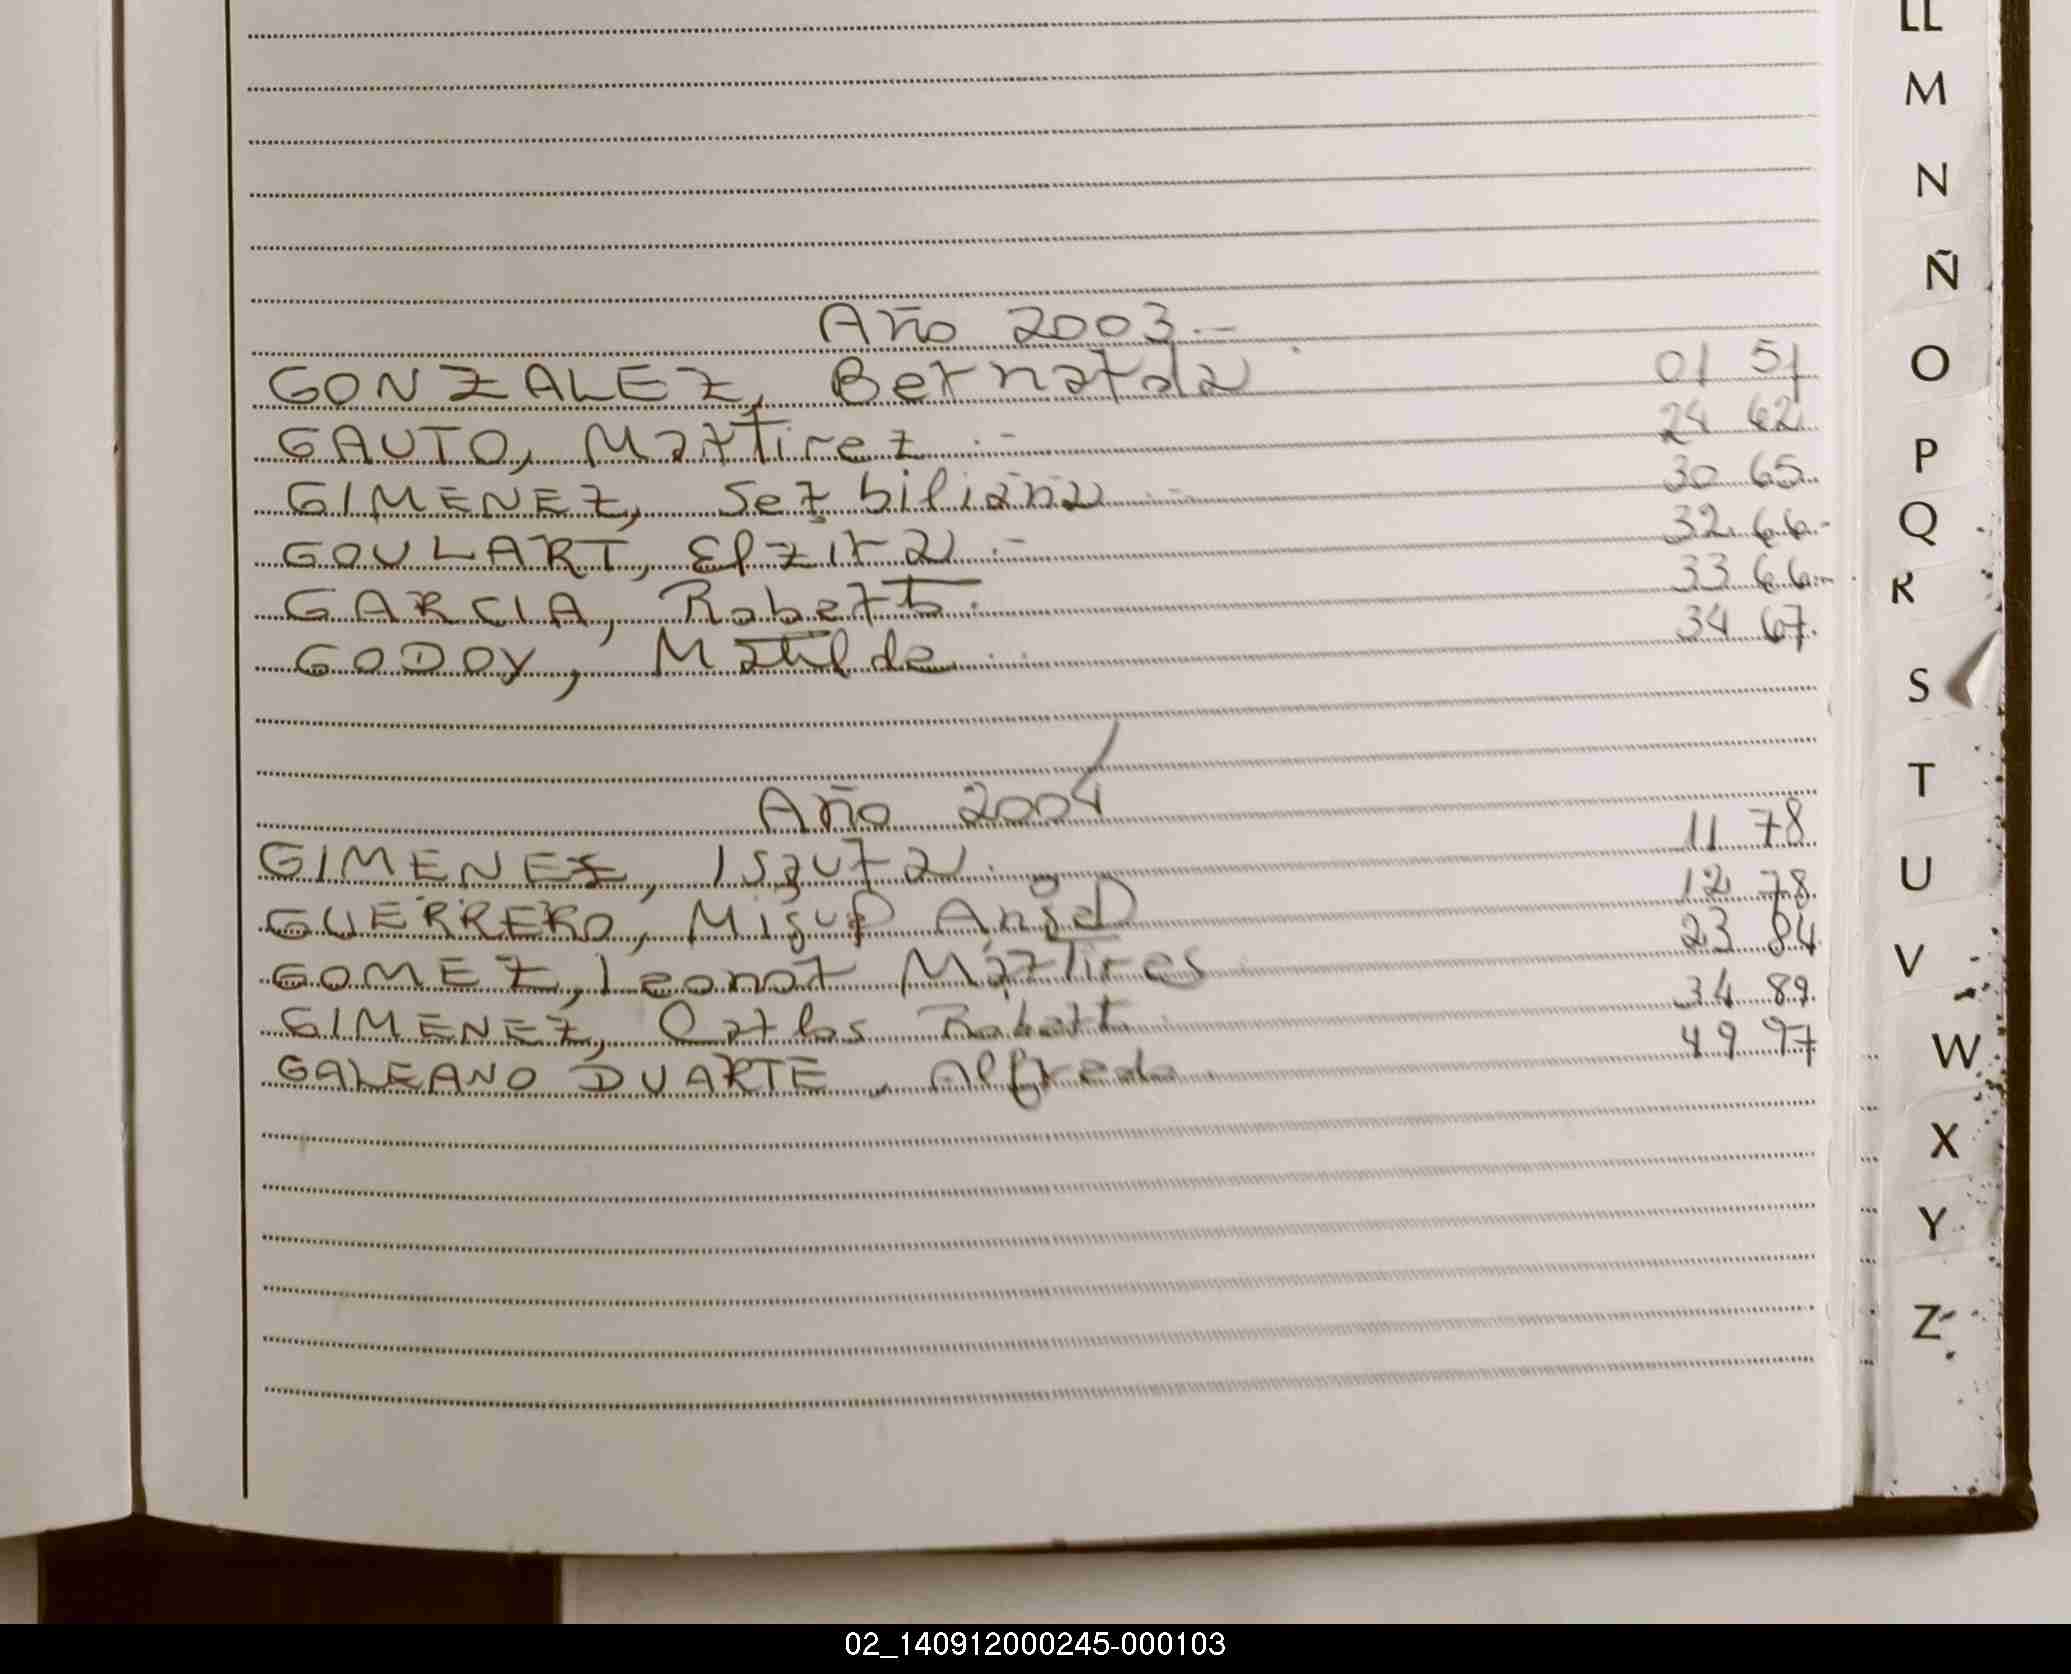 Año 2003.-
GONZALEZ, Bernarda 01 51
GAUTO, Martirez .- 24 62
GIMENEZ, Serbiliana .- 30 65
GOULART, Elzira .- 32 66.-
GARCIA, Roberto. 33 66.-
GODOY, Matilde 34 67.
Año 2004
GIMENEZ, Isaura. 11 78
GUERRERO, Miguel Angel 12 78
GOMEZ, Leonor Martires 23 84
GIMENEZ, Carlos Roberto 34 89.
GALEANO DUARTE, Alfredo. 49 97
LL
M
N
Ñ
O
P
Q
R
S
T
U
V
W
X
Y
Z
02_140912000245-000103